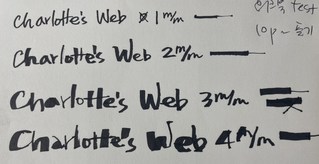 Charlotte's Web 1m/m
Charlotte's Web 2m/m
Charlotte's Web 3m/m
Charlotte's Web 4m/m
test